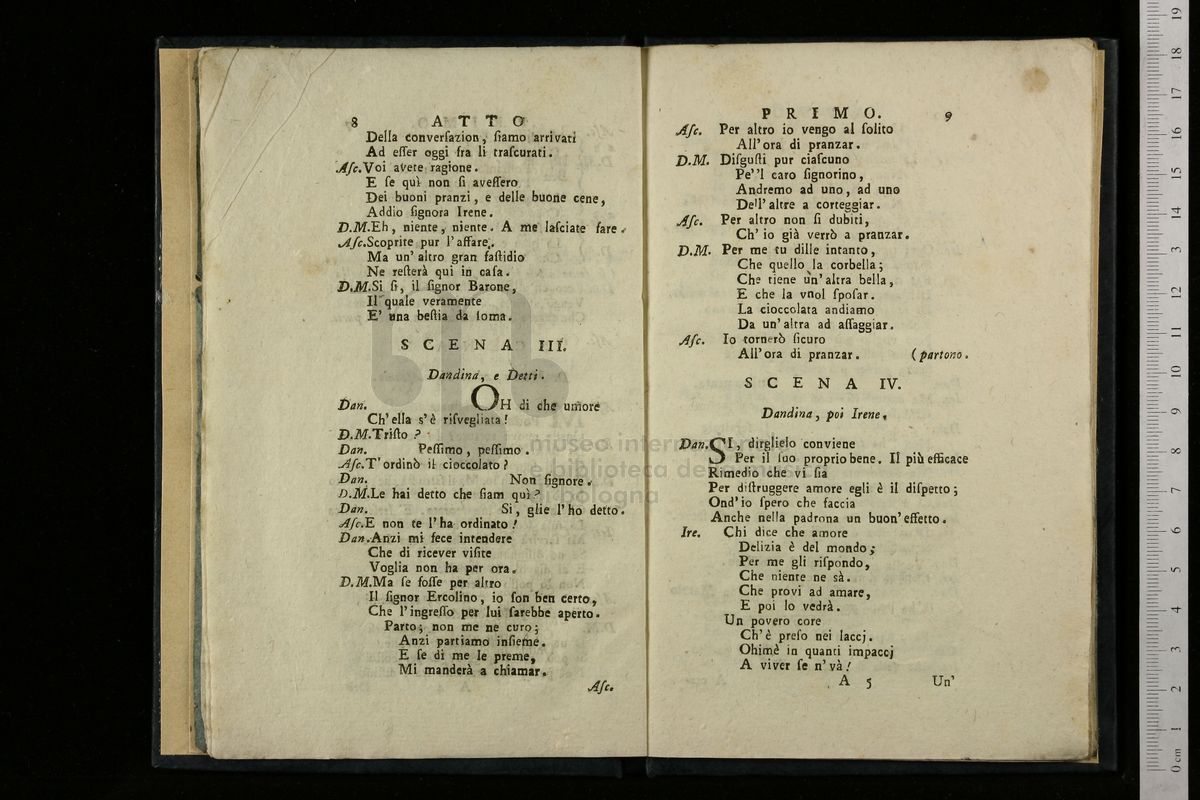 8 ATTO
Della converſazion, ſiamo arrivati
Ad eſſer oggi fra li traſcurati.
Aſc. Voi avete ragione.
E ſe quì non ſi aveſſero
Dei buoni pranzi, e delle buone cene,
Addio ſignora Irene.
D.M. Eh, niente, niente. A me laſciate fare.
Aſc. Scoprite pur l'affare.
Ma un' altro gran faſtidio
Ne reſterà qui in caſa.
D.M. Si ſi, il ſignor Barone,
Il quale veramente
E' una beſtia da ſoma.
SCENA III.
Dandina, e Detti.
Dan. OH di che umore
Ch' ella s'è riſvegliata!
D.M. Triſto?
Dan. Peſſimo, peſſimo.
Aſc. T' ordinò il cioccolato?
Dan. Non ſignore.
D.M. Le hai detto che ſiam quì?
Dan. Si, glie l'ho detto.
Aſc. E non te l'ha ordinato!
Dan. Anzi mi fece intendere
Che di ricever viſite
Voglia non ha per ora.
D.M. Ma ſe foſſe per altro
Il ſignor Ercolino, io ſon ben certo,
Che l'ingreſſo per lui ſarebbe aperto.
Parto; non me ne curo;
Anzi partiamo inſieme.
E ſe di me le preme,
Mi manderà a chiamar.
Aſc.
PRIMO. 9
Aſc. Per altro io vengo al ſolito
All' ora di pranzar.
D.M. Diſguſti pur ciaſcuno
Pe''l caro ſignorino,
Andremo ad uno, ad uno
Dell' altre a corteggiar.
Aſc. Per altro non ſi dubiti,
Ch' io già verrò a pranzar.
D.M. Per me tu dille intanto,
Che quello la corbella;
Che tiene un' altra bella,
E che la vuol ſpoſar.
La cioccolata andiamo
Da un' altra ad aſſaggiar.
Aſc. Io tornerò ſicuro
All' ora di pranzar. (partono.
SCENA IV.
Dandina, poi Irene,
Dan. SI, dirglielo conviene
Per il ſuo proprio bene. Il più efficace
Rimedio che vi ſia
Per diſtruggere amore egli è il diſpetto;
Ond' io ſpero che faccia
Anche nella padrona un buon' effetto.
Ire. Chi dice che amore
Delizia è del mondo;
Per me gli riſpondo,
Che niente ne sà.
Che provi ad amare,
E poi lo vedrà.
Un povero core
Ch' è preſo nei laccj.
Ohimè in quanti impaccj
A viver ſe n' và!
A 5 Un'